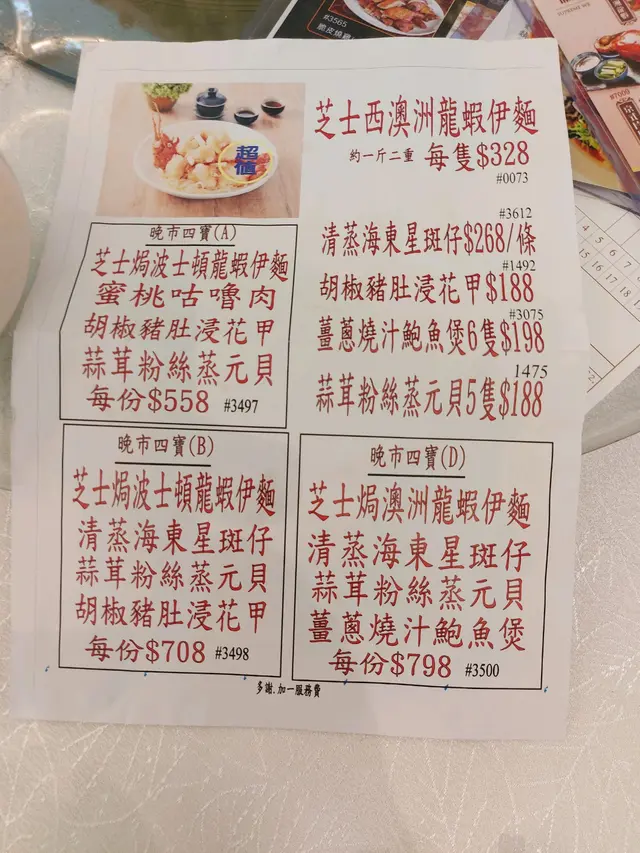 #3565
脆皮燒雞
超值
芝士西澳洲龍蝦伊麵
約一斤二重 每隻$328
#0073
#3612
清蒸海東星斑仔$268/條
#1492
胡椒豬肚浸花甲$188
#3075
薑蔥燒汁鮑魚煲6隻$198
1475
蒜茸粉絲蒸元貝5隻$188
晚市四寶(A)
芝士焗波士頓龍蝦伊麵
蜜桃咕嚕肉
胡椒豬肚浸花甲
蒜茸粉絲蒸元貝
每份$558 #3497
晚市四寶(B)
芝士焗波士頓龍蝦伊麵
清蒸海東星斑仔
蒜茸粉絲蒸元貝
胡椒豬肚浸花甲
每份$708 #3498
晚市四寶(D)
芝士焗澳洲龍蝦伊麵
清蒸海東星斑仔
蒜茸粉絲蒸元貝
薑蔥燒汁鮑魚煲
每份$798 #3500
多謝.加一服務費